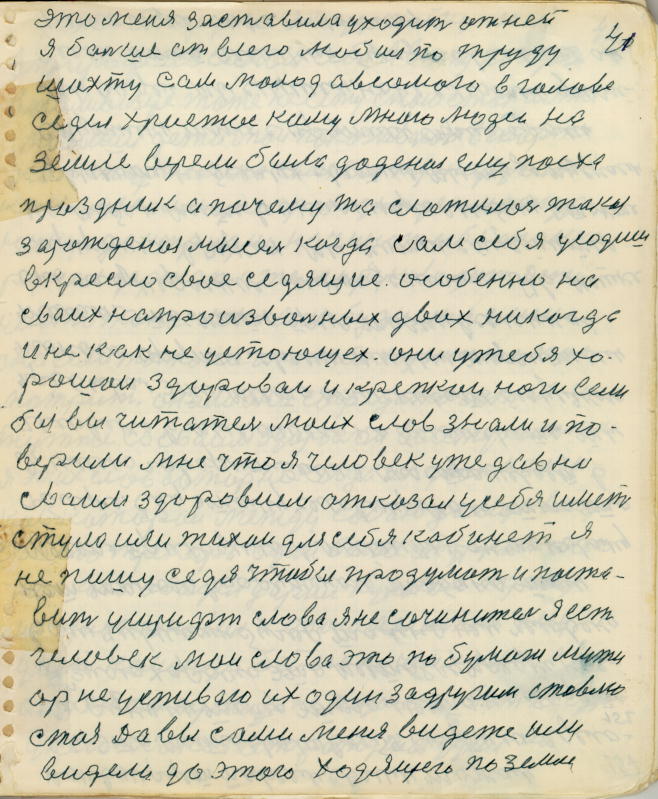 это меня заставила уходит от ней
41
я болше от всего любил по труду
шахту сам молод авсомого в голове
седел христос кому много людей на
земле верели была додена ему пасха
праздник а почему та сложилоя така
зарождения мысея когда сам себя усодиш
в кресло свое седящие. особенно на
сваих напроизволных двох никогда
и не как не устоющех. они у тебя хо.
рошаи здороваи и крепкои ноги если
бы вы читателя моих слов знали и по-
верили мне что я человек уже давно
сваим здоровием отказал у себя иметь
стула или тихаи для себя кабинет я
не пишу седя чтобы продумат и поста-
вит шрифт слова я не сочинител я ест
человек мои слова это по бумаги
не успиваю их один за другим ставлю
стоя да вы сами меня видете или
видели до этого ходящего по земле